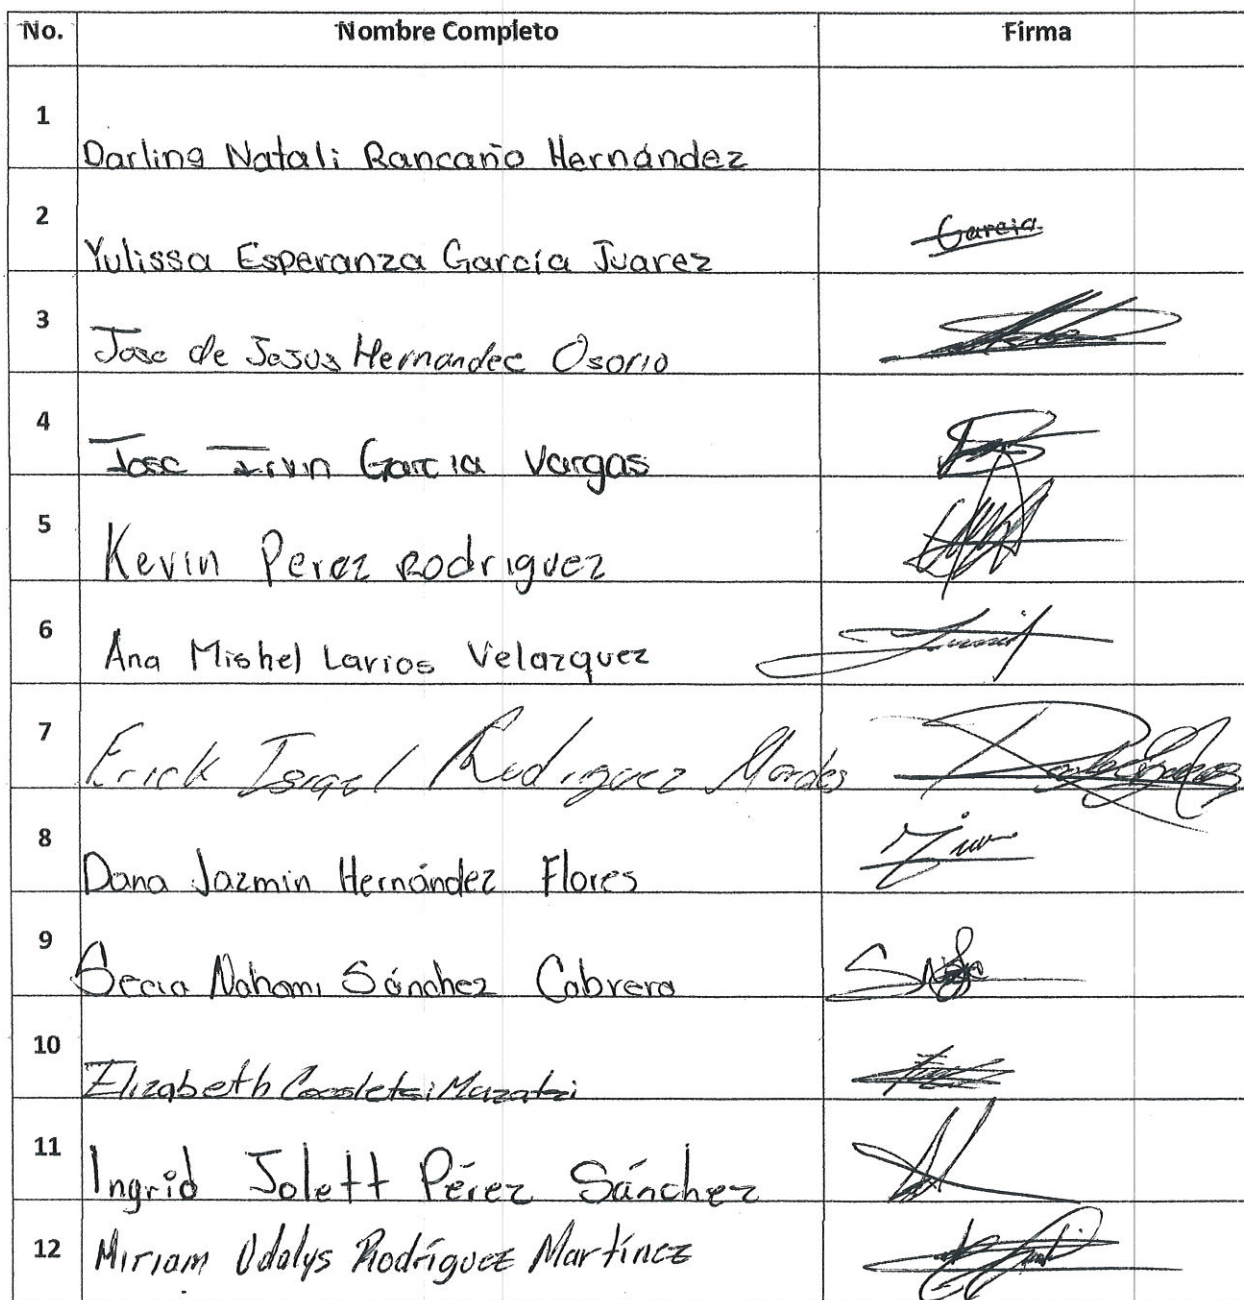 No. Nombre Completo Firma
1 Darling Natali Rancaño Hernández
2 Yulissa Esperanza García Juarez Garcia
3 Jose de Jesus Hernandez Osorio
4 Jose Irvin Garcia Vargas
5 Kevin Perez Rodriguez
6 Ana Mishel Larios Velazquez
7 Erick Israel Rodriguez Morales
8 Dana Jazmin Hernández Flores
9 Secia Nahomi Sánchez Cabrera
10 Elizabeth Cocoletzi Mazatzi
11 Ingrid Jolett Pérez Sánchez
12 Miriam Odalys Rodríguez Martínez